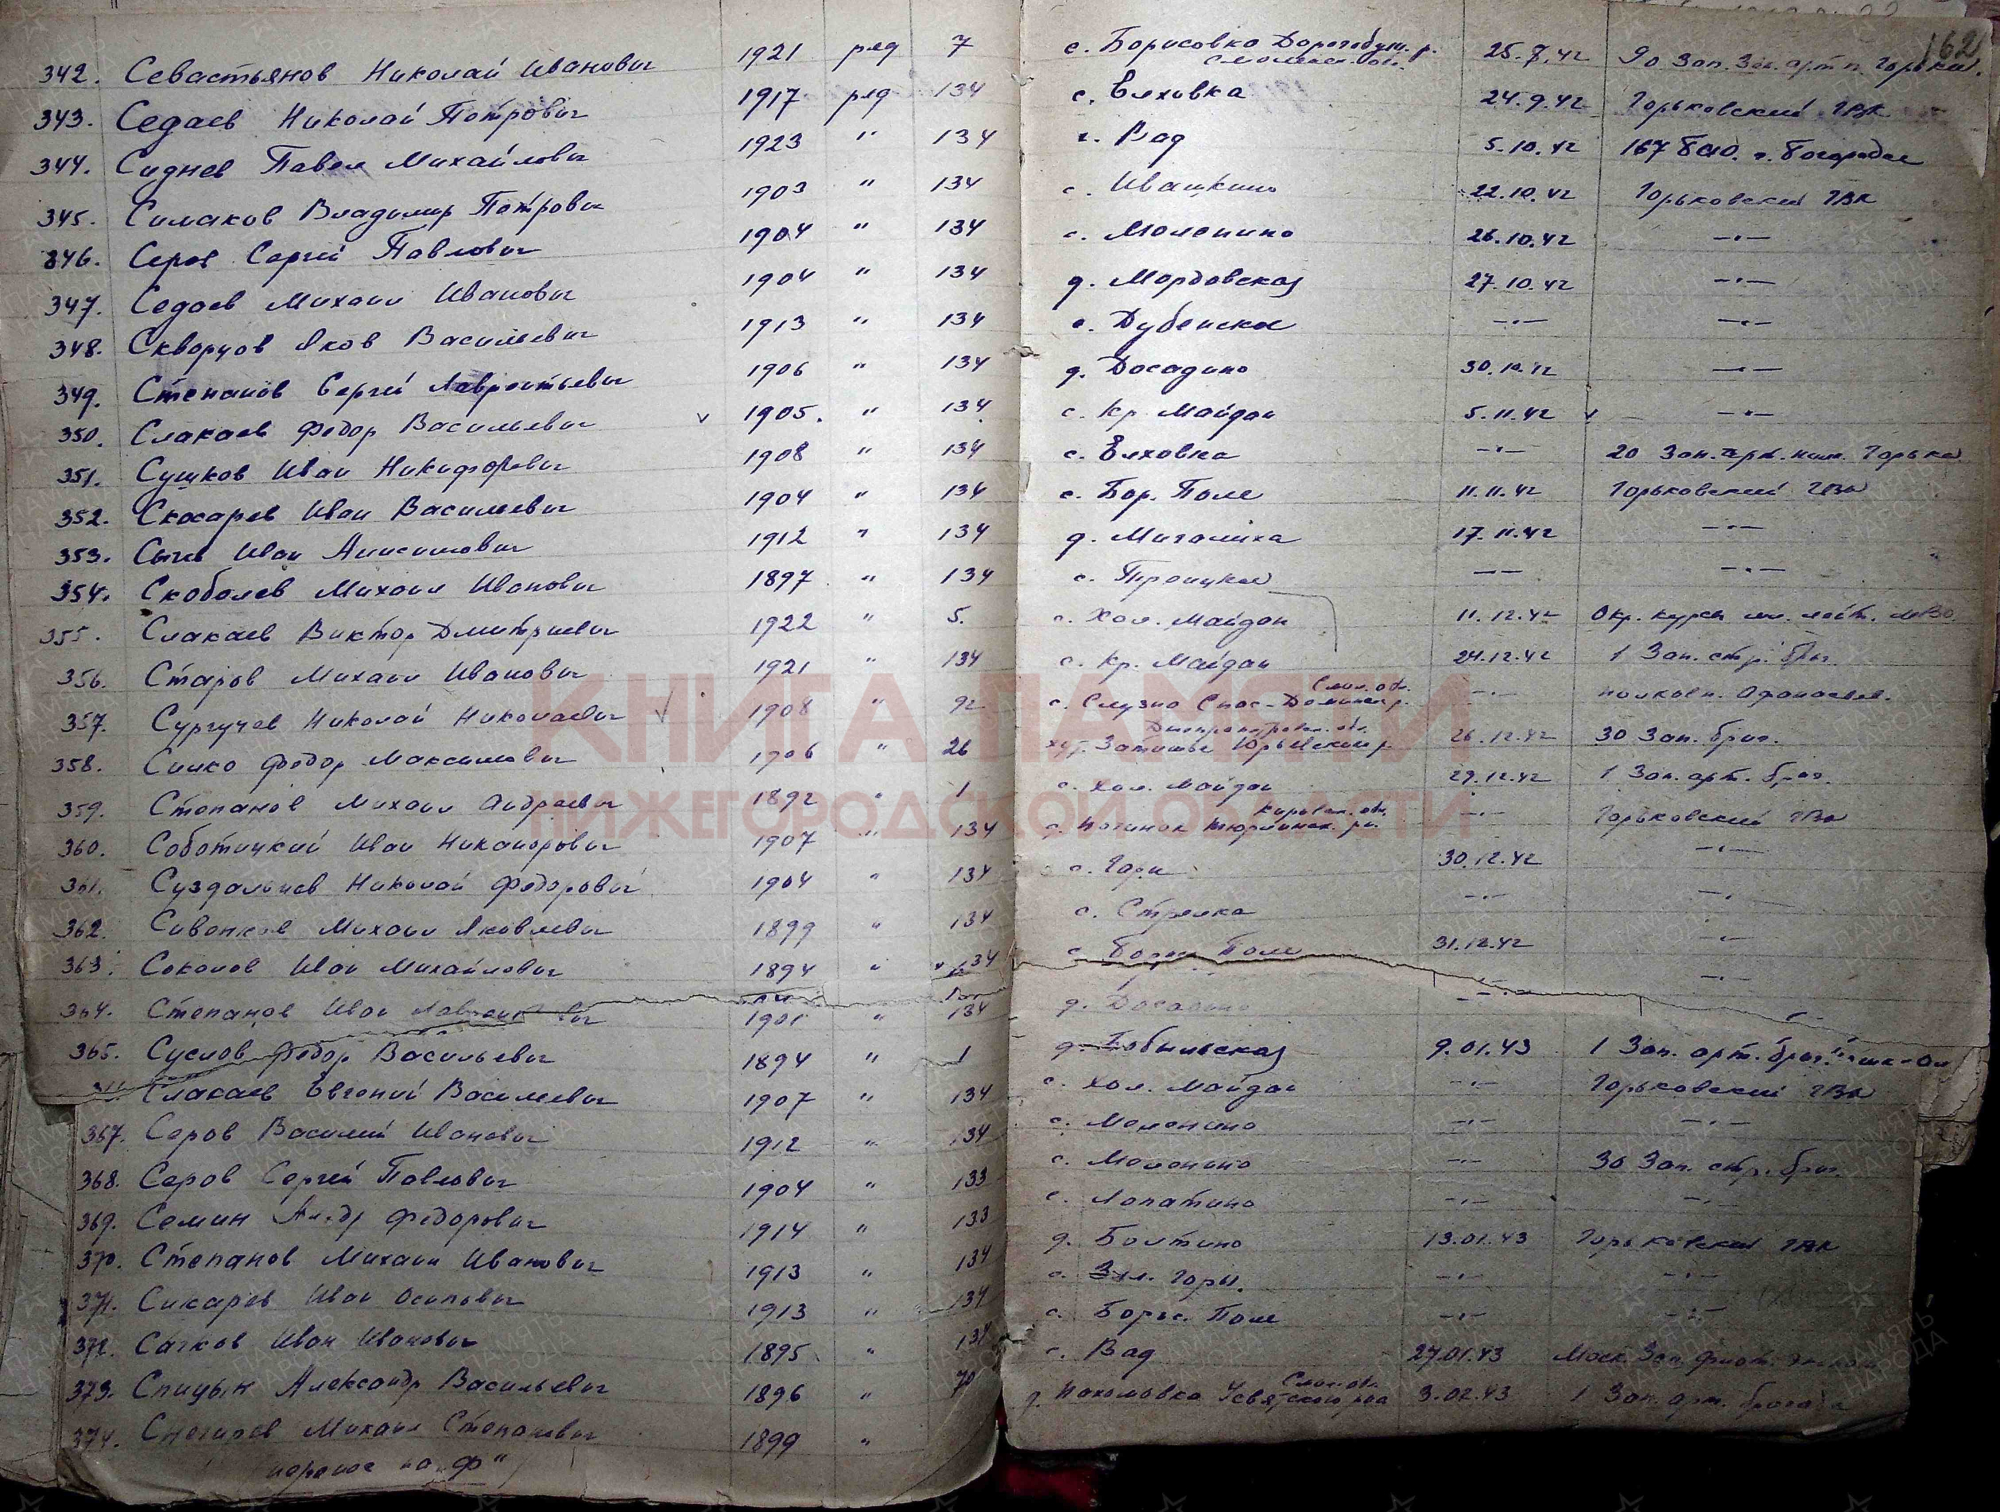 162
342. Севастьянов Николай Иванович 1921 ряд 7 с. Борисовка Дорогобуж. р. Смоленск. обл. 25.7.42 90 Зап. Зен. арт. п. Горький.
343. Седаев Николай Петрович 1917 ряд 134 с. Елховка 24.9.42 Горьковский ГВК
344. Сиднев Павел Михайлович 1923 " 134 с. Вад 5.10.42 167 бао. г. Богородск
345. Симаков Владимир Петрович 1903 " 134 с. Ивашкино 22.10.42 Горьковский ГВК
346. Серов Сергей Павлович 1904 " 134 с. Меленино 26.10.42 —"—
347. Седаев Михаил Иванович 1904 " 134 д. Мордовская 27.10.42 —"—
348. Скворцов Яков Васильевич 1913 " 134 с. Дубенское —"— —"—
349. Степанов Сергей Лаврентьевич 1906 " 134 д. Досадино 30.10.42 —"—
350. Слакаев Федор Васильевич v 1905. " 134 с. Кр. Майдан 5.11.42 v —"—
351. Сушков Иван Никифорович 1908 " 134 с. Елховка —"— 20 Зап. арт. Горький
352. Скосарев Иван Васильевич 1904 " 134 с. Бор. Поле 11.11.42 Горьковский ГВК
353. Иван Анисимович 1912 " 134 д. Мигалиха 17.11.42 —"—
354. Скоболев Михаил Иванович 1897 " 134 с. Троицкое —"— —"—
355. Слакаев Виктор Дмитриевич 1922 " 5. с. Хол. Майдан 11.12.42 Окр. курсы мл. лейт. МВО
356. Старов Михаил Иванович 1921 " 134 с. Кр. Майдан 24.12.42 1 Зап. стр. бриг.
357. Сургучев Николай Николаевич v 1908 " 92 с. Слузно Спас-Деменск. р. Смол. обл. —"— полковн. Афанасьев.
358. Сушко Федор Максимович 1906 " 26 хут. Затишье Юрьевский р. Днепропетровск. обл. 26.12.42 30 Зап. бриг.
359. Степанов Михаил Андреевич 1892 " 1 с. Хол. Майдан 29.12.42 1 Зап. арт. бриг.
360. Соботицкий Иван Никанорович 1907 " 134 д. Починок рн. Кировск. обл. —"— Горьковский ГВК
361. Суздальцев Николай Федорович 1904 " 134 с. Гори 30.12.42 —"—
362. Сивонков Михаил Яковлевич 1899 " 134 с. Стрелка —"— —"—
363. Соколов Иван Михайлович 1894 " 134 с. Борис. Поле 31.12.42 —"—
364. Степанов Иван 1901 " 134 д. Досадино —"— —"—
365. Суслов Федор Васильевич 1894 " 1 д. Бобыльская 9.01.43 1 Зап. арт. бриг.
Слакаев Евгений Васильевич 1907 " 134 с. Хол. Майдан —"— Горьковский ГВК
367. Серов Василий Иванович 1912 " 134 с. Меленино —"— —"—
368. Серов Сергей Павлович 1904 " 133 с. Меленино —"— 30 Зап. стр. бриг.
369. Семин Ал-др Федорович 1914 " 133 с. Лопатино —"— —"—
370. Степанов Михаил Иванович 1913 " 134 д. Болтино 13.01.43 Горьковский ГВК
371. Сикарев Иван Осипович 1913 " 134 с. Зел. Горы. —"— —"—
372. Сачков Иван Иванович 1895 " 134 с. Борис. Поле —"— —"—
373. Спицын Александр Васильевич 1896 " 70 с. Вад 27.01.43 Моск. Зап.
374. Снегирев Михаил Степанович 1899 " д. Пахомовка Усвятского р-на Смол. обл. 3.02.43 1 Зап. арт. бригада
перенос на „Ф"
КНИГА ПАМЯТИ
НИЖЕГОРОДСКОЙ ОБЛАСТИ
ПАМЯТЬ НАРОДА